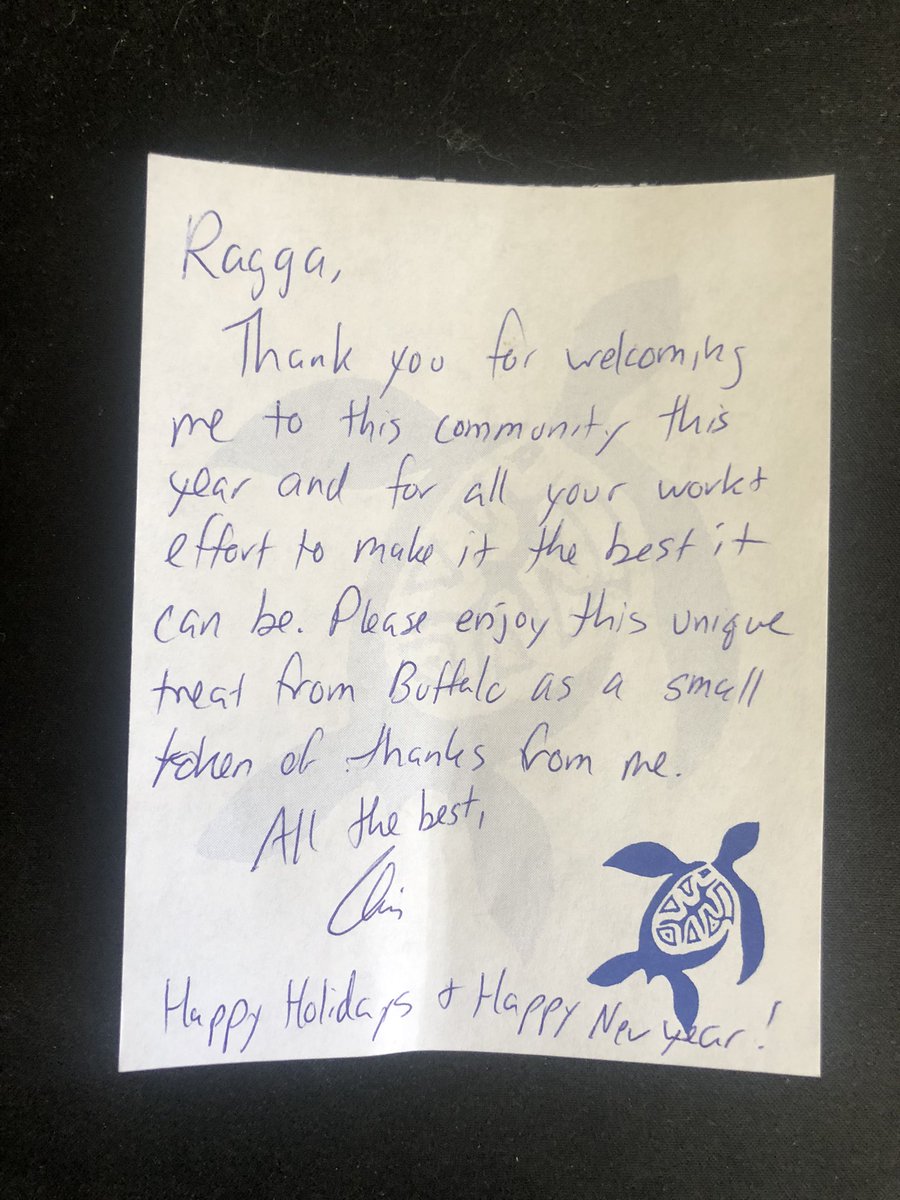 Ragga,
Thank you for welcoming
me to this community this
year and for all your work +
effort to make it the best it
can be. Please enjoy this unique
treat from Buffalo as a small
token of thanks from me.
All the best,
Chris
Happy Holidays + Happy New year!